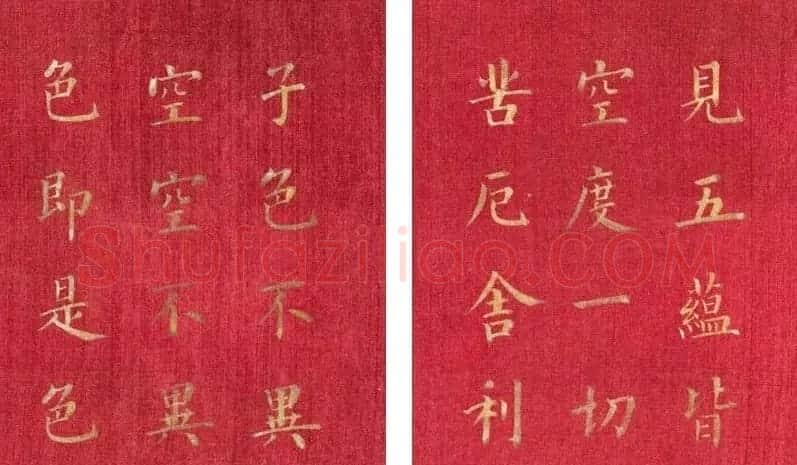 見五蘊皆
空度一切
苦厄舍利
子色不異
空空不異
色即是色
Shufaziliao.COM